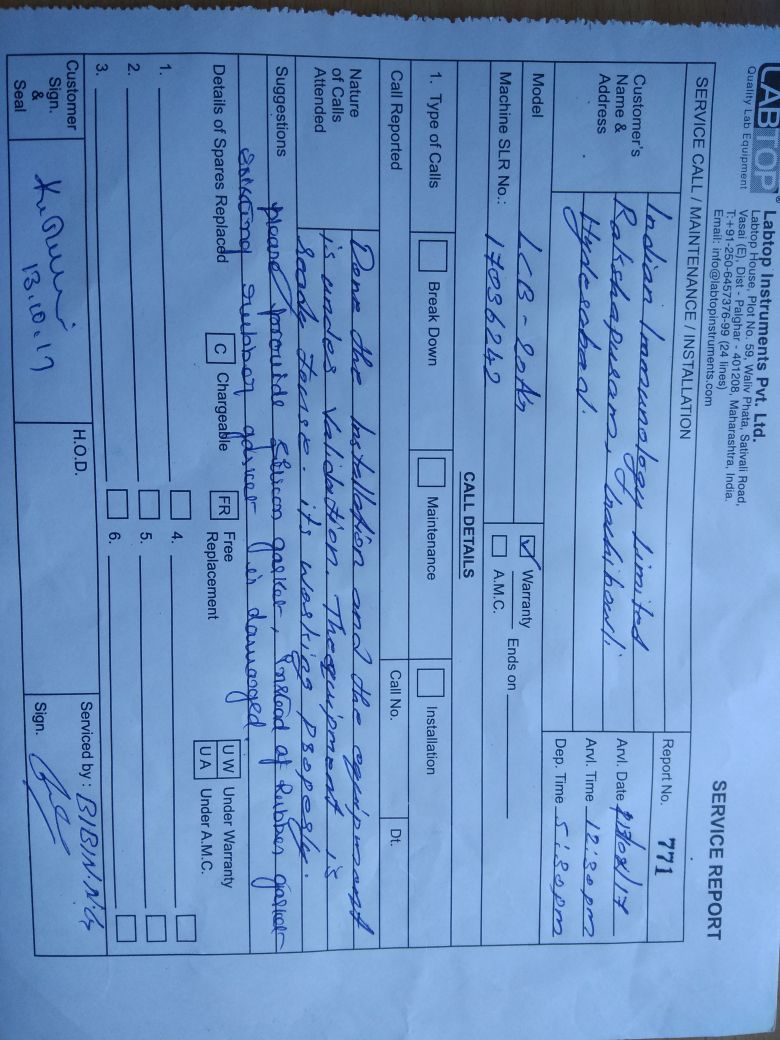 LABTOP®
Quality Lab Equipment
Labtop Instruments Pvt. Ltd.
Labtop House, Plot No. 59, Waliv Phata, Sativali Road,
Vasai (E), Dist - Palghar - 401208, Maharashtra, India.
T:+91-250-6457376-99 (24 lines)
Email: info@labtopinstruments.com
SERVICE REPORT
SERVICE CALL / MAINTENANCE / INSTALLATION
Report No. 771
Customer's Name & Address
Indian Immunology Limited
Rakshapuram, Gachibowli
Hyderabad.
Arvl. Date /17
Arvl. Time 12:30pm
Dep. Time 5:30pm
Model LCB-
Machine SLR No.: 17036242
Warranty
A.M.C.
Ends on
CALL DETAILS
1. Type of Calls
Break Down
Maintenance
Installation
Call Reported
Call No.
Dt.
Nature of Calls Attended
Done the Installation and the equipment
is under Validation. The equipment is
ready to use. its working properly.
Suggestions
please provide Silicon gasket, Instead of Rubber gasket
existing rubber gasket is damaged.
Details of Spares Replaced
C Chargeable
FR Free Replacement
U W Under Warranty
U A Under A.M.C.
1.
2.
3.
4.
5.
6.
Customer Sign. & Seal
13.10.17
H.O.D.
Serviced by : BIBIN.N.G
Sign.